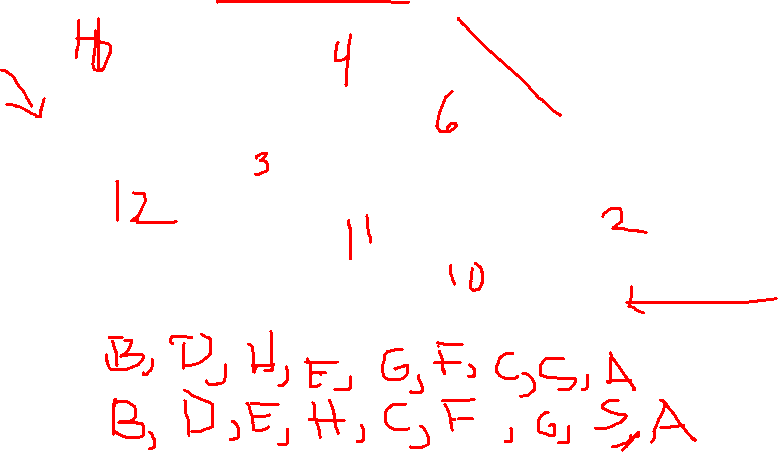 4
6
3
12
11
2
10
B, D, H, E, G, F, C, S, A
B, D, E, H, C, F, G, S, A